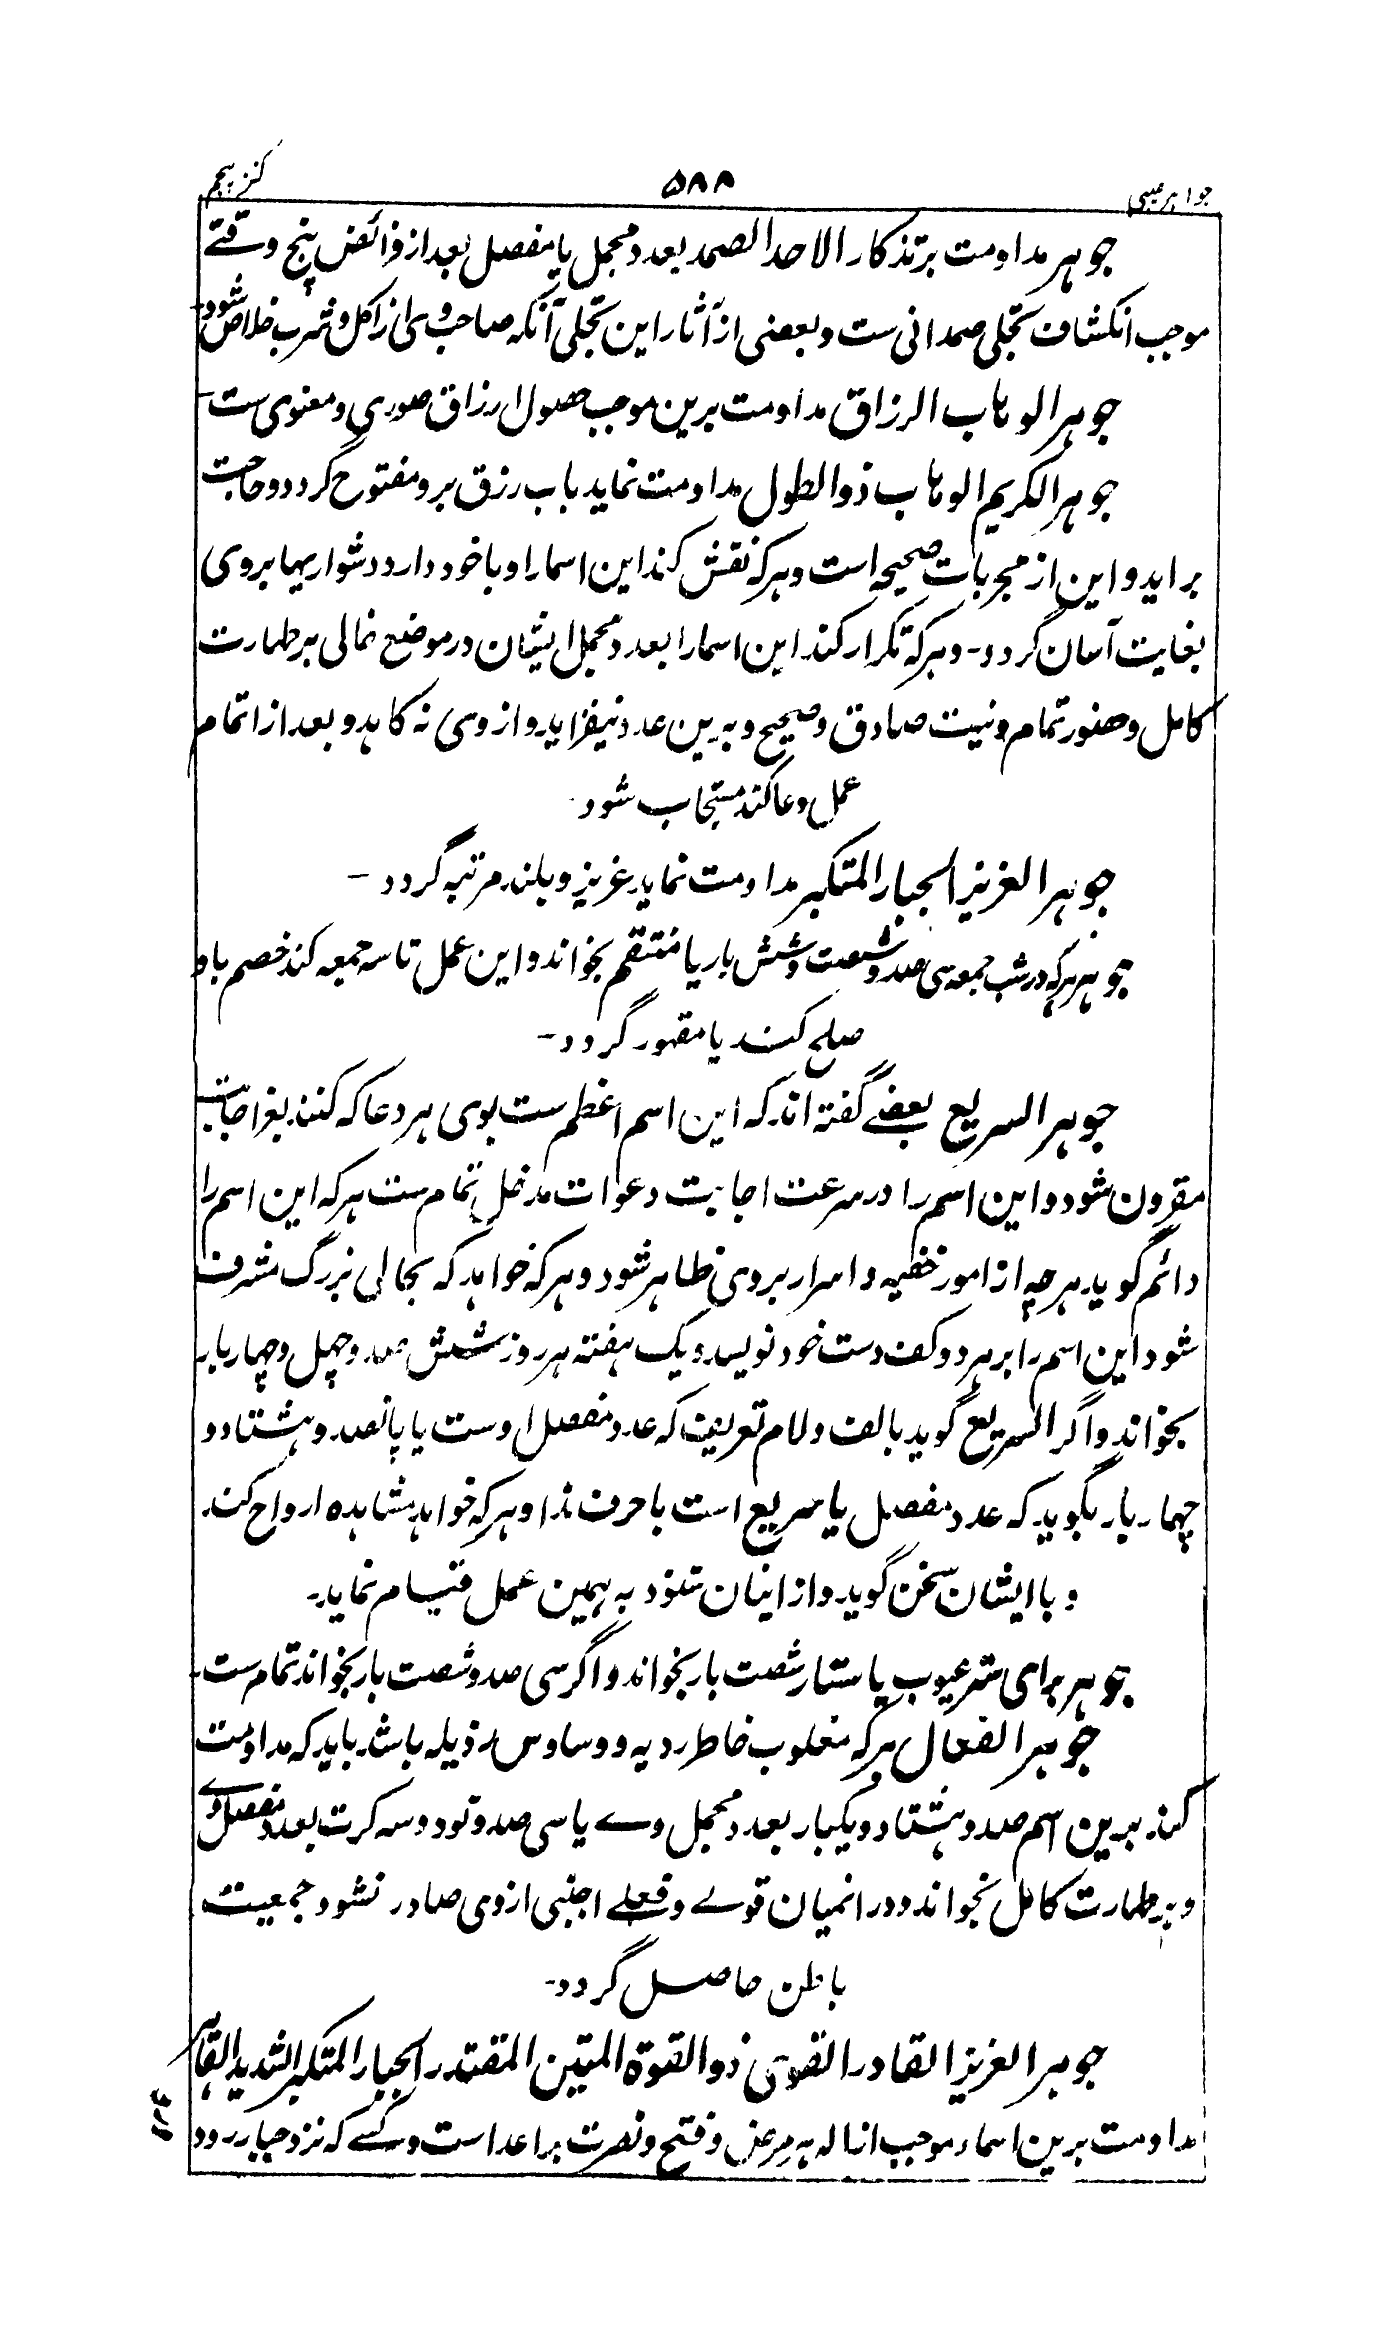 جواهر غیبی ۵۸۸ کنز پنجم
جوهر مداومت بر تذکار الاحد الصمد بعدد مجمل یا مفصل بعد از فرائض پنج وقتے
موجب انکشاف تجلی صمدانی ست و بعضی از آثار این تجلی آنکه صاحب وی از اکل و شرب خلاص شود
جوهر الوهاب الرزاق مداومت برین موجب حصول ارزاق صوری و معنوی ست
جوهر الکریم الوهاب ذوالطول مداومت نماید باب رزق برو مفتوح گردد و حاجت
براید و این از مجربات صحیحه است و هر که نقش کند این اسما را و با خود دارد دشواریها بروی
بغایت آسان گردد - و هر که تکرار کند این اسما را بعدد مجمل ایشان در موضع خالی بر طهارت
کامل و حضور تمام و نیت صادق و صحیح و برین عدد نیفزاید و از وی نه کاهد و بعد از اتمام
عمل دعا کند مستجاب شود
جوهر العزیز الجبار المتکبر مداومت نماید عزیز و بلند مرتبه گردد -
جوهر هر که در شب جمعه سی صد و شصت و شش بار یا منتقم بخواند و این عمل تا سه جمعه کند خصم باو
صلح کند یا مقهور گردد -
جوهر السریع بعضے گفته اند که این اسم اعظم ست بوی هر دعا که کنند بعز اجابت
مقرون شود و این اسم را در سرعت اجابت دعوات مدخل تمام ست هر که این اسم را
دائم گوید هر چه از امور خفیه و اسرار بروی ظاهر شود و هر که خواهد که بجالی بزرگ مشرف
شود این اسم را بر هر دو کف دست خود نویسد و یک هفته هر روز شش صد و چهل و چهار بار
بخواند و اگر السریع گوید بالف و لام تعریف که عدد مفصل اوست یا پانصد و هشتاد و
چهار بار بگوید که عدد مفصل یا سریع است با حرف ندا و هر که خواهد مشاهده ارواح کند
و با ایشان سخن گوید و از اینان شنود به همین عمل قیام نماید -
جوهر برای ستر عیوب یا ستار شصت بار بخواند و اگر سی صد و شصت بار بخواند تمام ست
جوهر الفعال هر که مغلوب خاطر ردیه و وساوس رذیله باشد باید که مداومت
کند برین اسم صد و هشتاد و یکبار بعدد مجمل وے یا سی صد و نود و سه کرت بعدد مفصل وے
و بر طهارت کامل بخواند و در انمیان قولے و فعلے اجنبی ازوی صادر نشود جمعیت
باطن حاصل گردد -
جوهر العزیز القادر القوی ذو القوة المتین المقتدر الجبار المتکبر الشدید القاهر
مداومت برین اسماء موجب ازاله هر مرض و فتح و نصرت بر اعدا است و کسے که نزد جبار رود